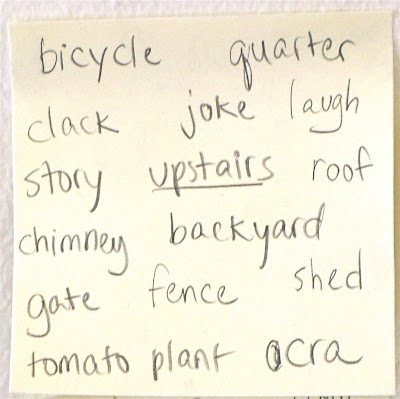 bicycle quarter
clack joke laugh
story upstairs roof
chimney backyard
gate fence shed
tomato plant ocra